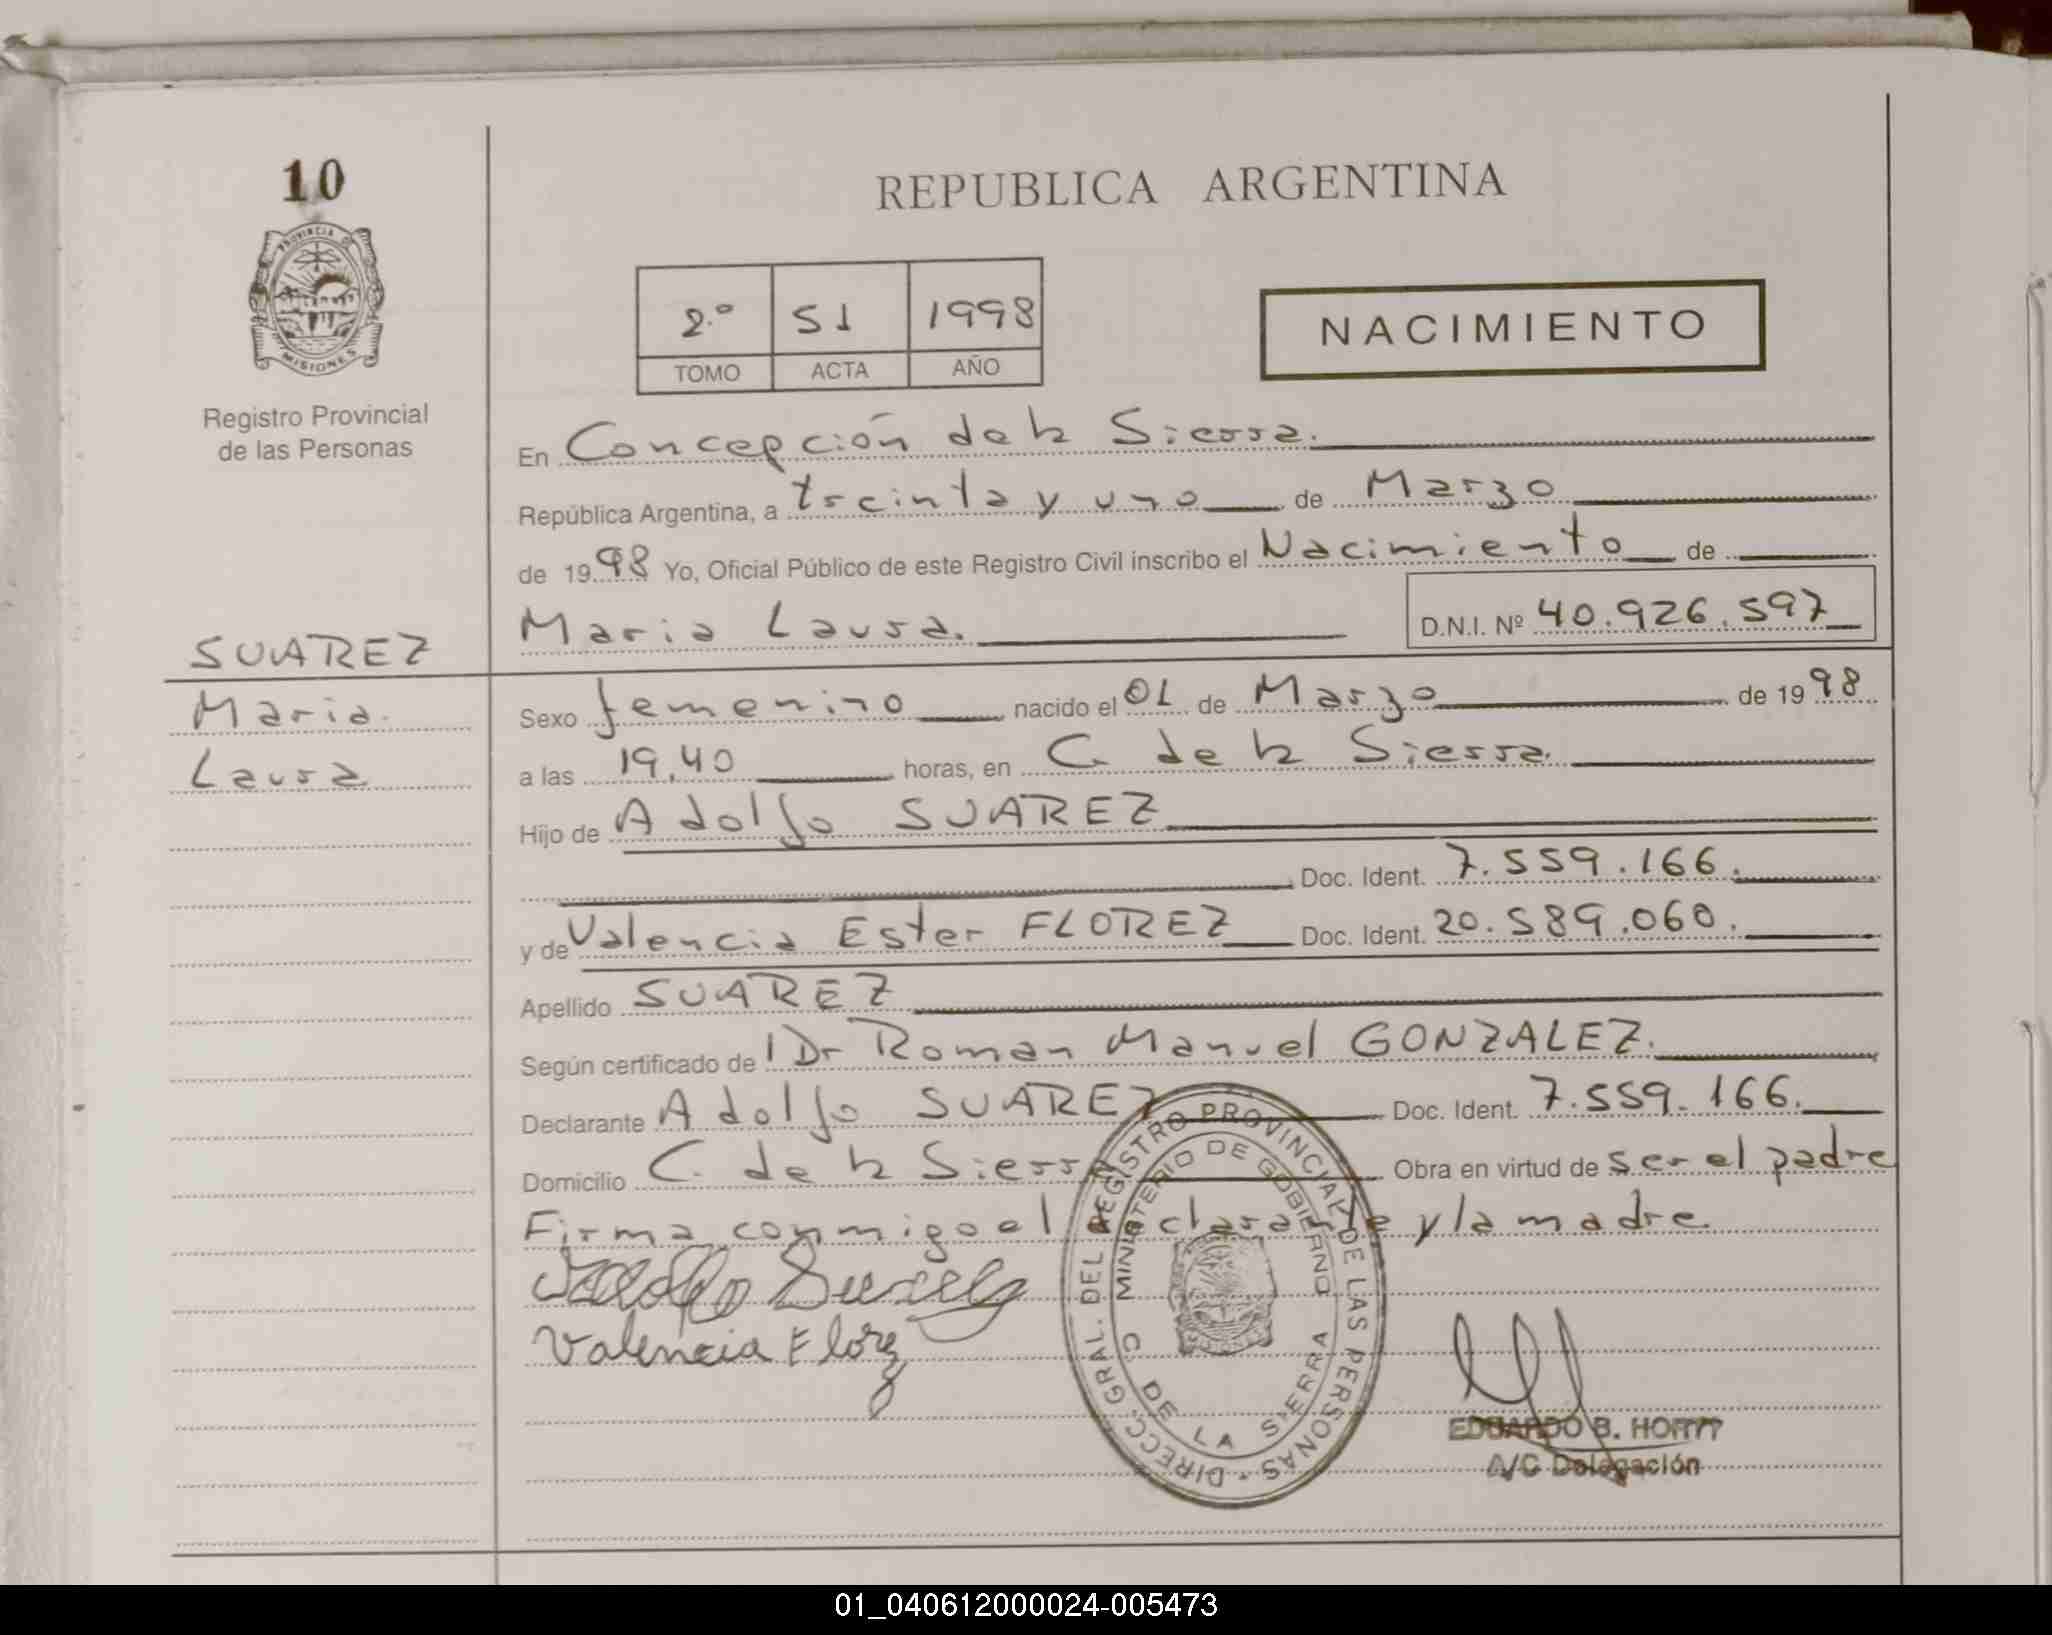 10
PROVINCIA DE
MISIONES
Registro Provincial
de las Personas
REPUBLICA ARGENTINA
2.º 51 1998
TOMO ACTA AÑO
NACIMIENTO
En Concepción de la Sierra.
República Argentina, a treinta y uno de Marzo
de 1998 Yo, Oficial Público de este Registro Civil inscribo el Nacimiento de
Maria Laura. D.N.I. Nº 40.926.597
SUAREZ
Maria
Laura
Sexo femenino nacido el 01 de Marzo de 1998
a las 19,40 horas, en C. de la Sierra.
Hijo de Adolfo SUAREZ
Doc. Ident. 7.559.166.
y de Valencia Ester FLOREZ Doc. Ident. 20.589.060.
Apellido SUAREZ
Según certificado de l Dr Roman Manuel GONZALEZ.
Declarante Adolfo SUAREZ Doc. Ident. 7.559.166.
Domicilio C. de la Sierra Obra en virtud de ser el padre
Firma conmigo el declarante y la madre.
Valencia Florez
DIRECC. GRAL. DEL REGISTRO PROVINCIAL DE LAS PERSONAS
MINISTERIO DE GOBIERNO
C DE LA SIERRA
EDUARDO B.
A/C Delegación
01_040612000024-005473